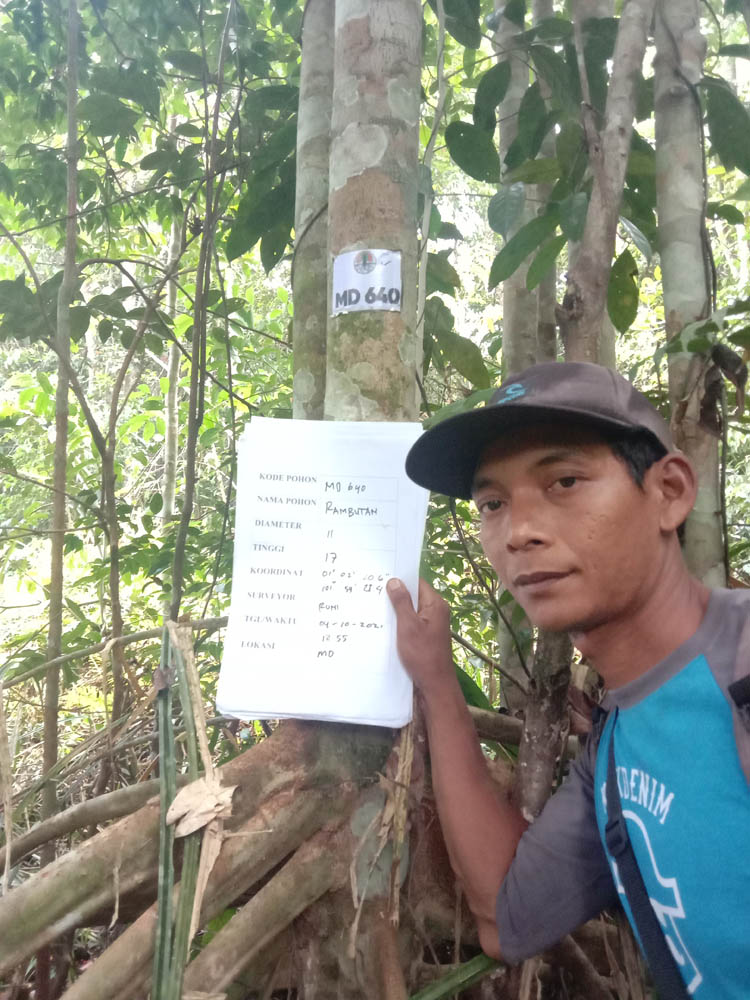 MD 640
KODE POHON MD 640
NAMA POHON RAMBUTAN
DIAMETER 11
TINGGI 17
KOORDINAT 01° 02'
101° 59'
SURVEYOR RUMI
TGL/WAKTU 04-10-2021
12 55
LOKASI MD
DENIM